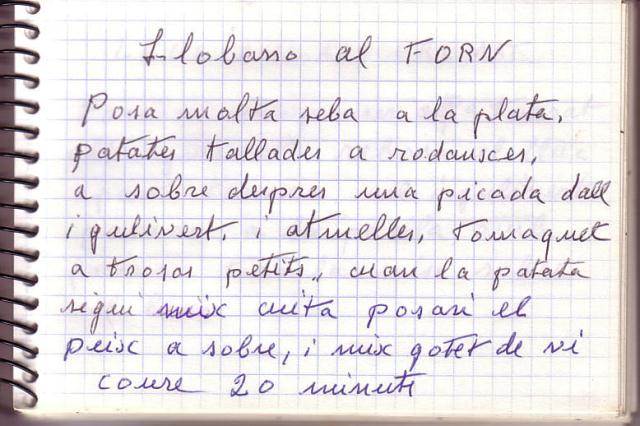 Llobarro al FORN
Posa molta seba a la plata,
patates tallades a rodansces,
a sobre despres una picada dall
i gulivert, i atmelles, tomaquet
a trosos petits, cuan la patata
sigui mix cuita posari el
peix a sobre, i mix gotet de vi
coure 20 minuts